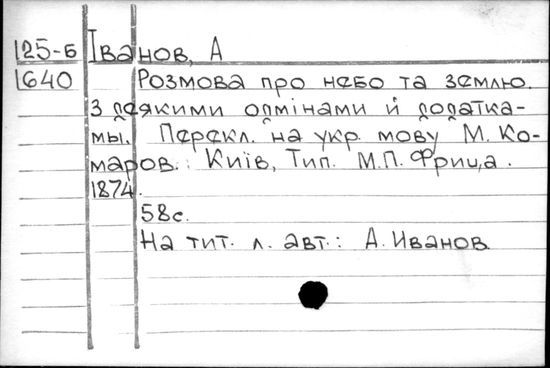 125-Б Іванов, А
1640 Розмова про небо та землю.
З деякими одмінами й додатка-
мы. Перекл. на укр. мову М. Ко-
маров. Київ, Тип. М.П. Фрица.
1874.
58с.
На тит. л. авт.: А. Иванов